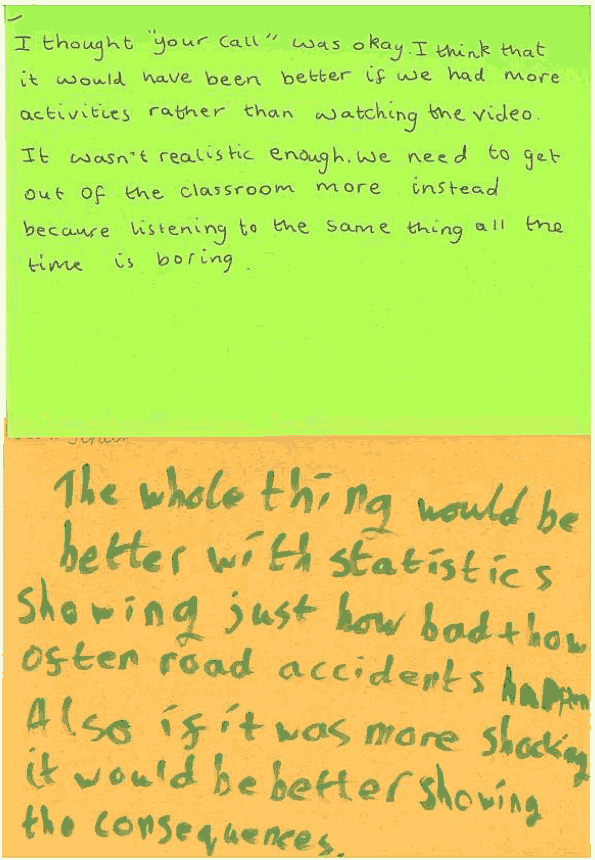 I thought "your call" was okay. I think that
it would have been better if we had more
activities rather than watching the video.
It wasn't realistic enough. We need to get
out of the classroom more instead
because listening to the same thing all the
time is boring.
The whole thing would be
better with statistics
showing just how bad + how
often road accidents happen
Also if it was more shocking
it would be better showing
the consequences.